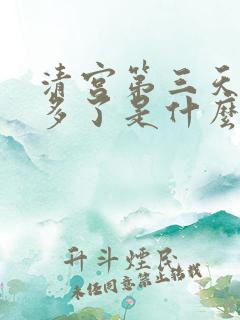 清宫第三天
多了是什麽
升斗煙民
未经同意禁止转载